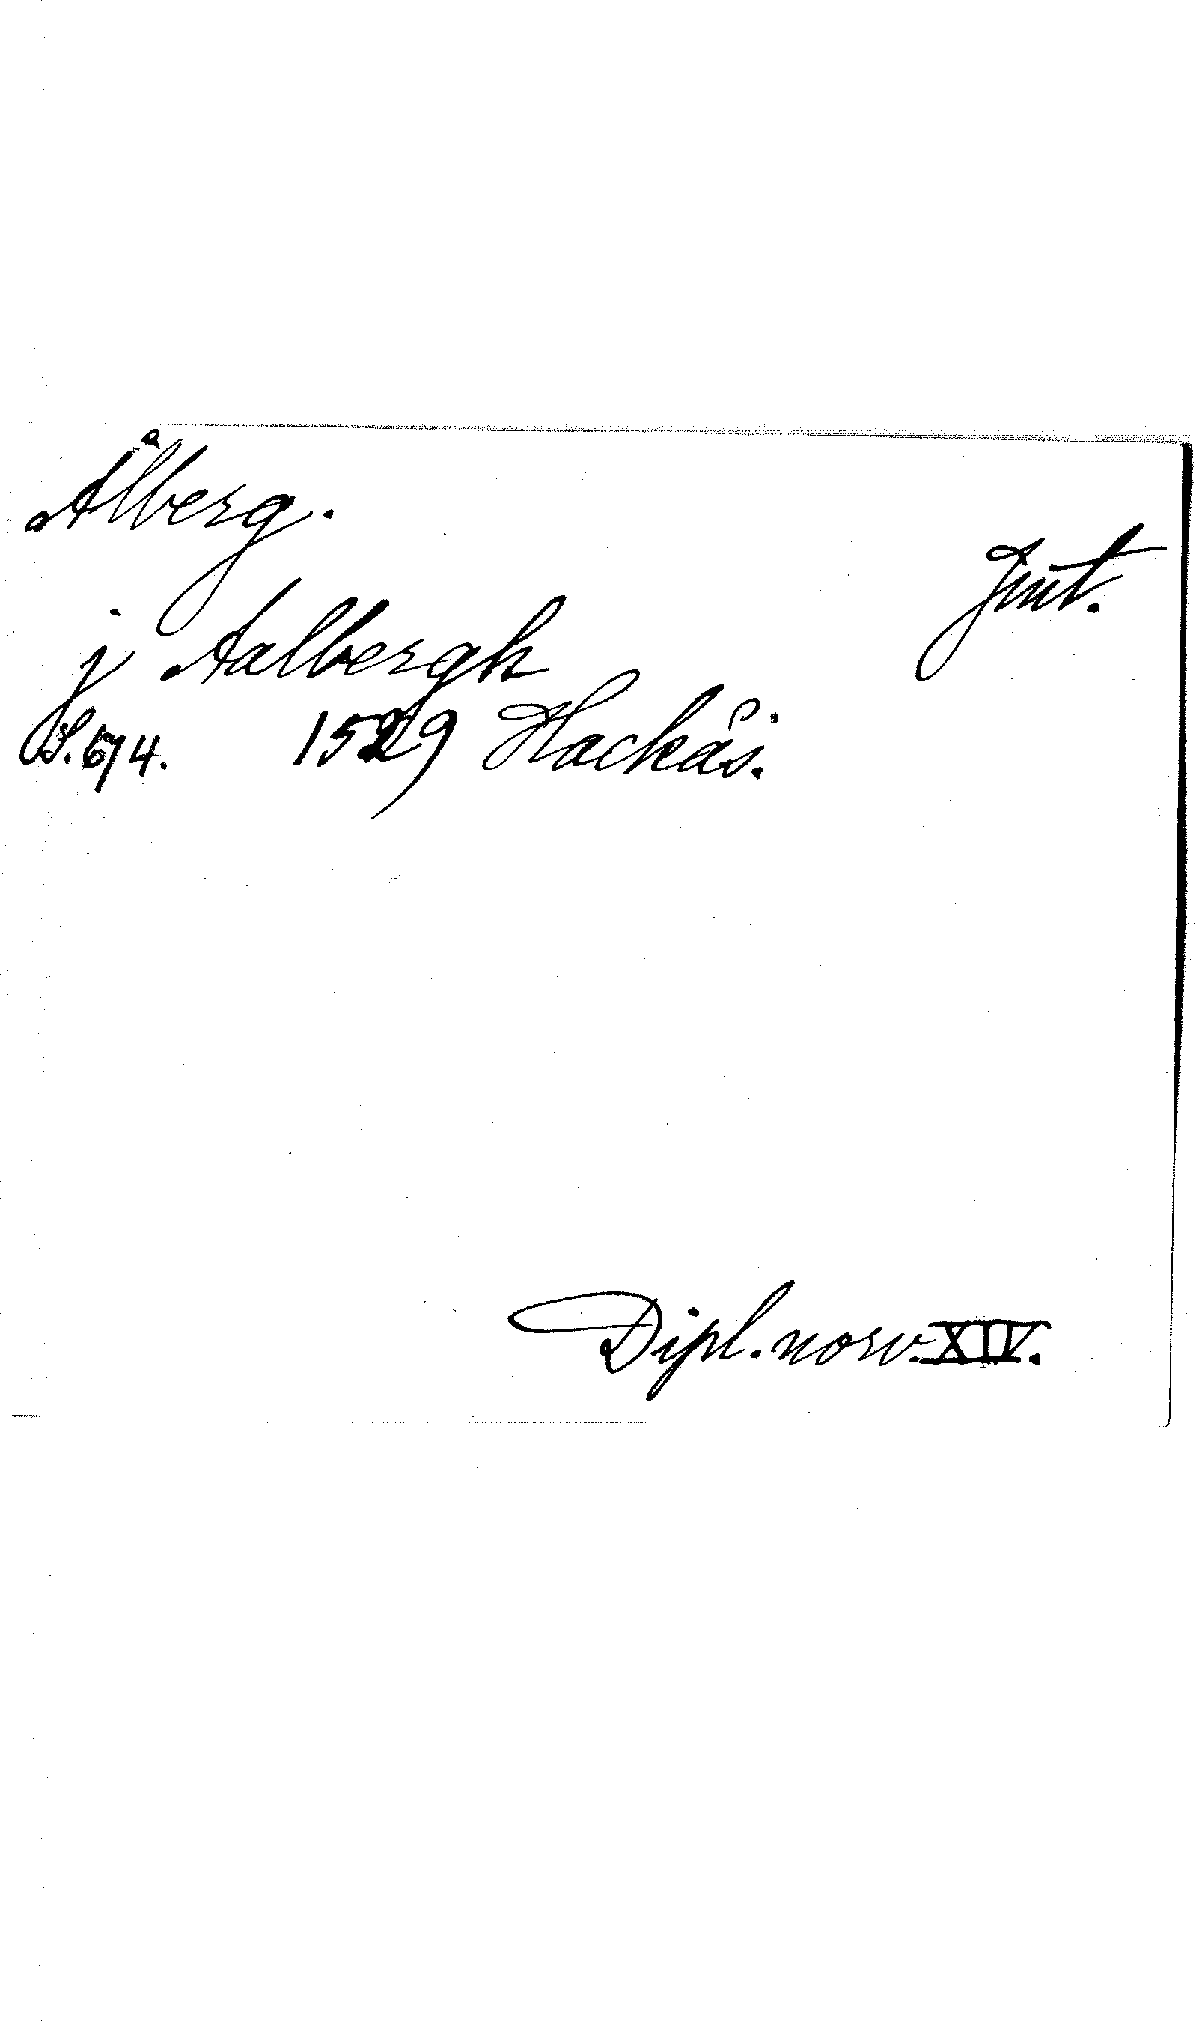 Ålberg.
Jmt.
j Aalbergh
S. 674. 1529 Hackås.
Dipl. norv. XIV.